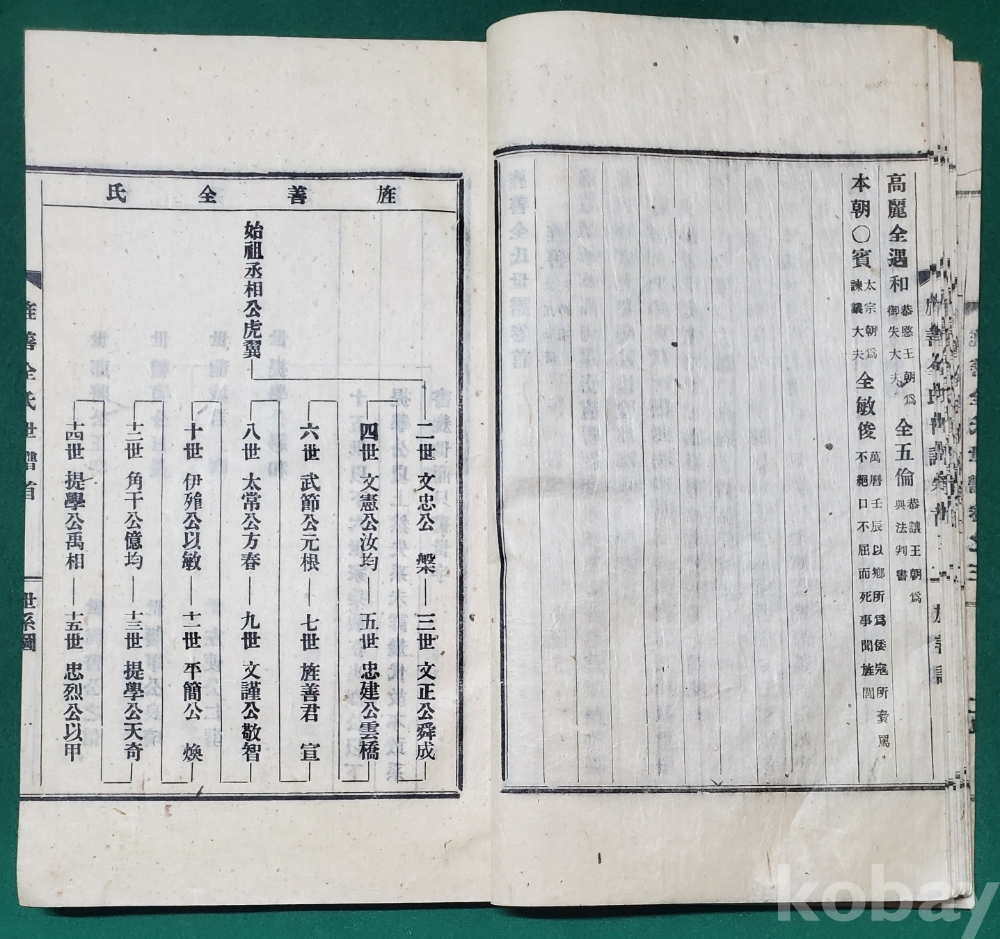 高麗全遇和 恭愍王朝爲御失大夫 全五倫 恭讓王朝爲典法判書
本朝〇賓 太宗朝爲諫議大夫 全敏俊 萬曆壬辰以鄉所爲倭寇所 罵不絕口不屈而死事聞旌閭
旌善全氏
始祖丞相公虎翼
二世 文忠公 槃 三世 文正公舜成
四世 文憲公汝均 五世 忠建公雲橋
六世 武節公元根 七世 旌善君 宣
八世 太常公方春 九世 文謹公敬智
十世 伊飱公以敏 十一世 平簡公 煥
十二世 角干公億均 十三世 提學公天奇
十四世 提學公禹相 十五世 忠烈公以甲
旌善全氏世譜首
世系圖
kobay